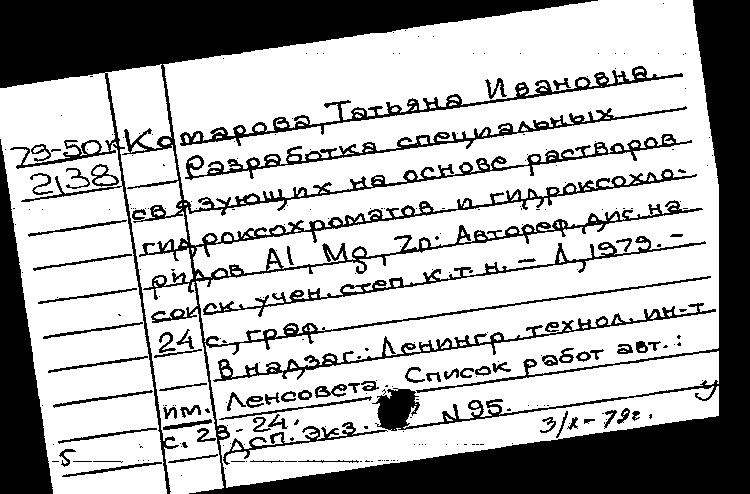 Комарова, Татьяна Ивановна.
79-50к
2138
Разработка специальных
связующих на основе растворов
гидроксохроматов и гидроксохло-
ридов Al, Mg, Zn: Автореф. дис. на
соиск. учен. степ. к.т.н. – Л., 1979. –
24 с., граф.
В надзаг.: Ленингр. технол. ин-т
им. Ленсовета. Список работ авт.:
с. 23-24.
ДСП. Экз. N 95.
3/X-79г.
у
5